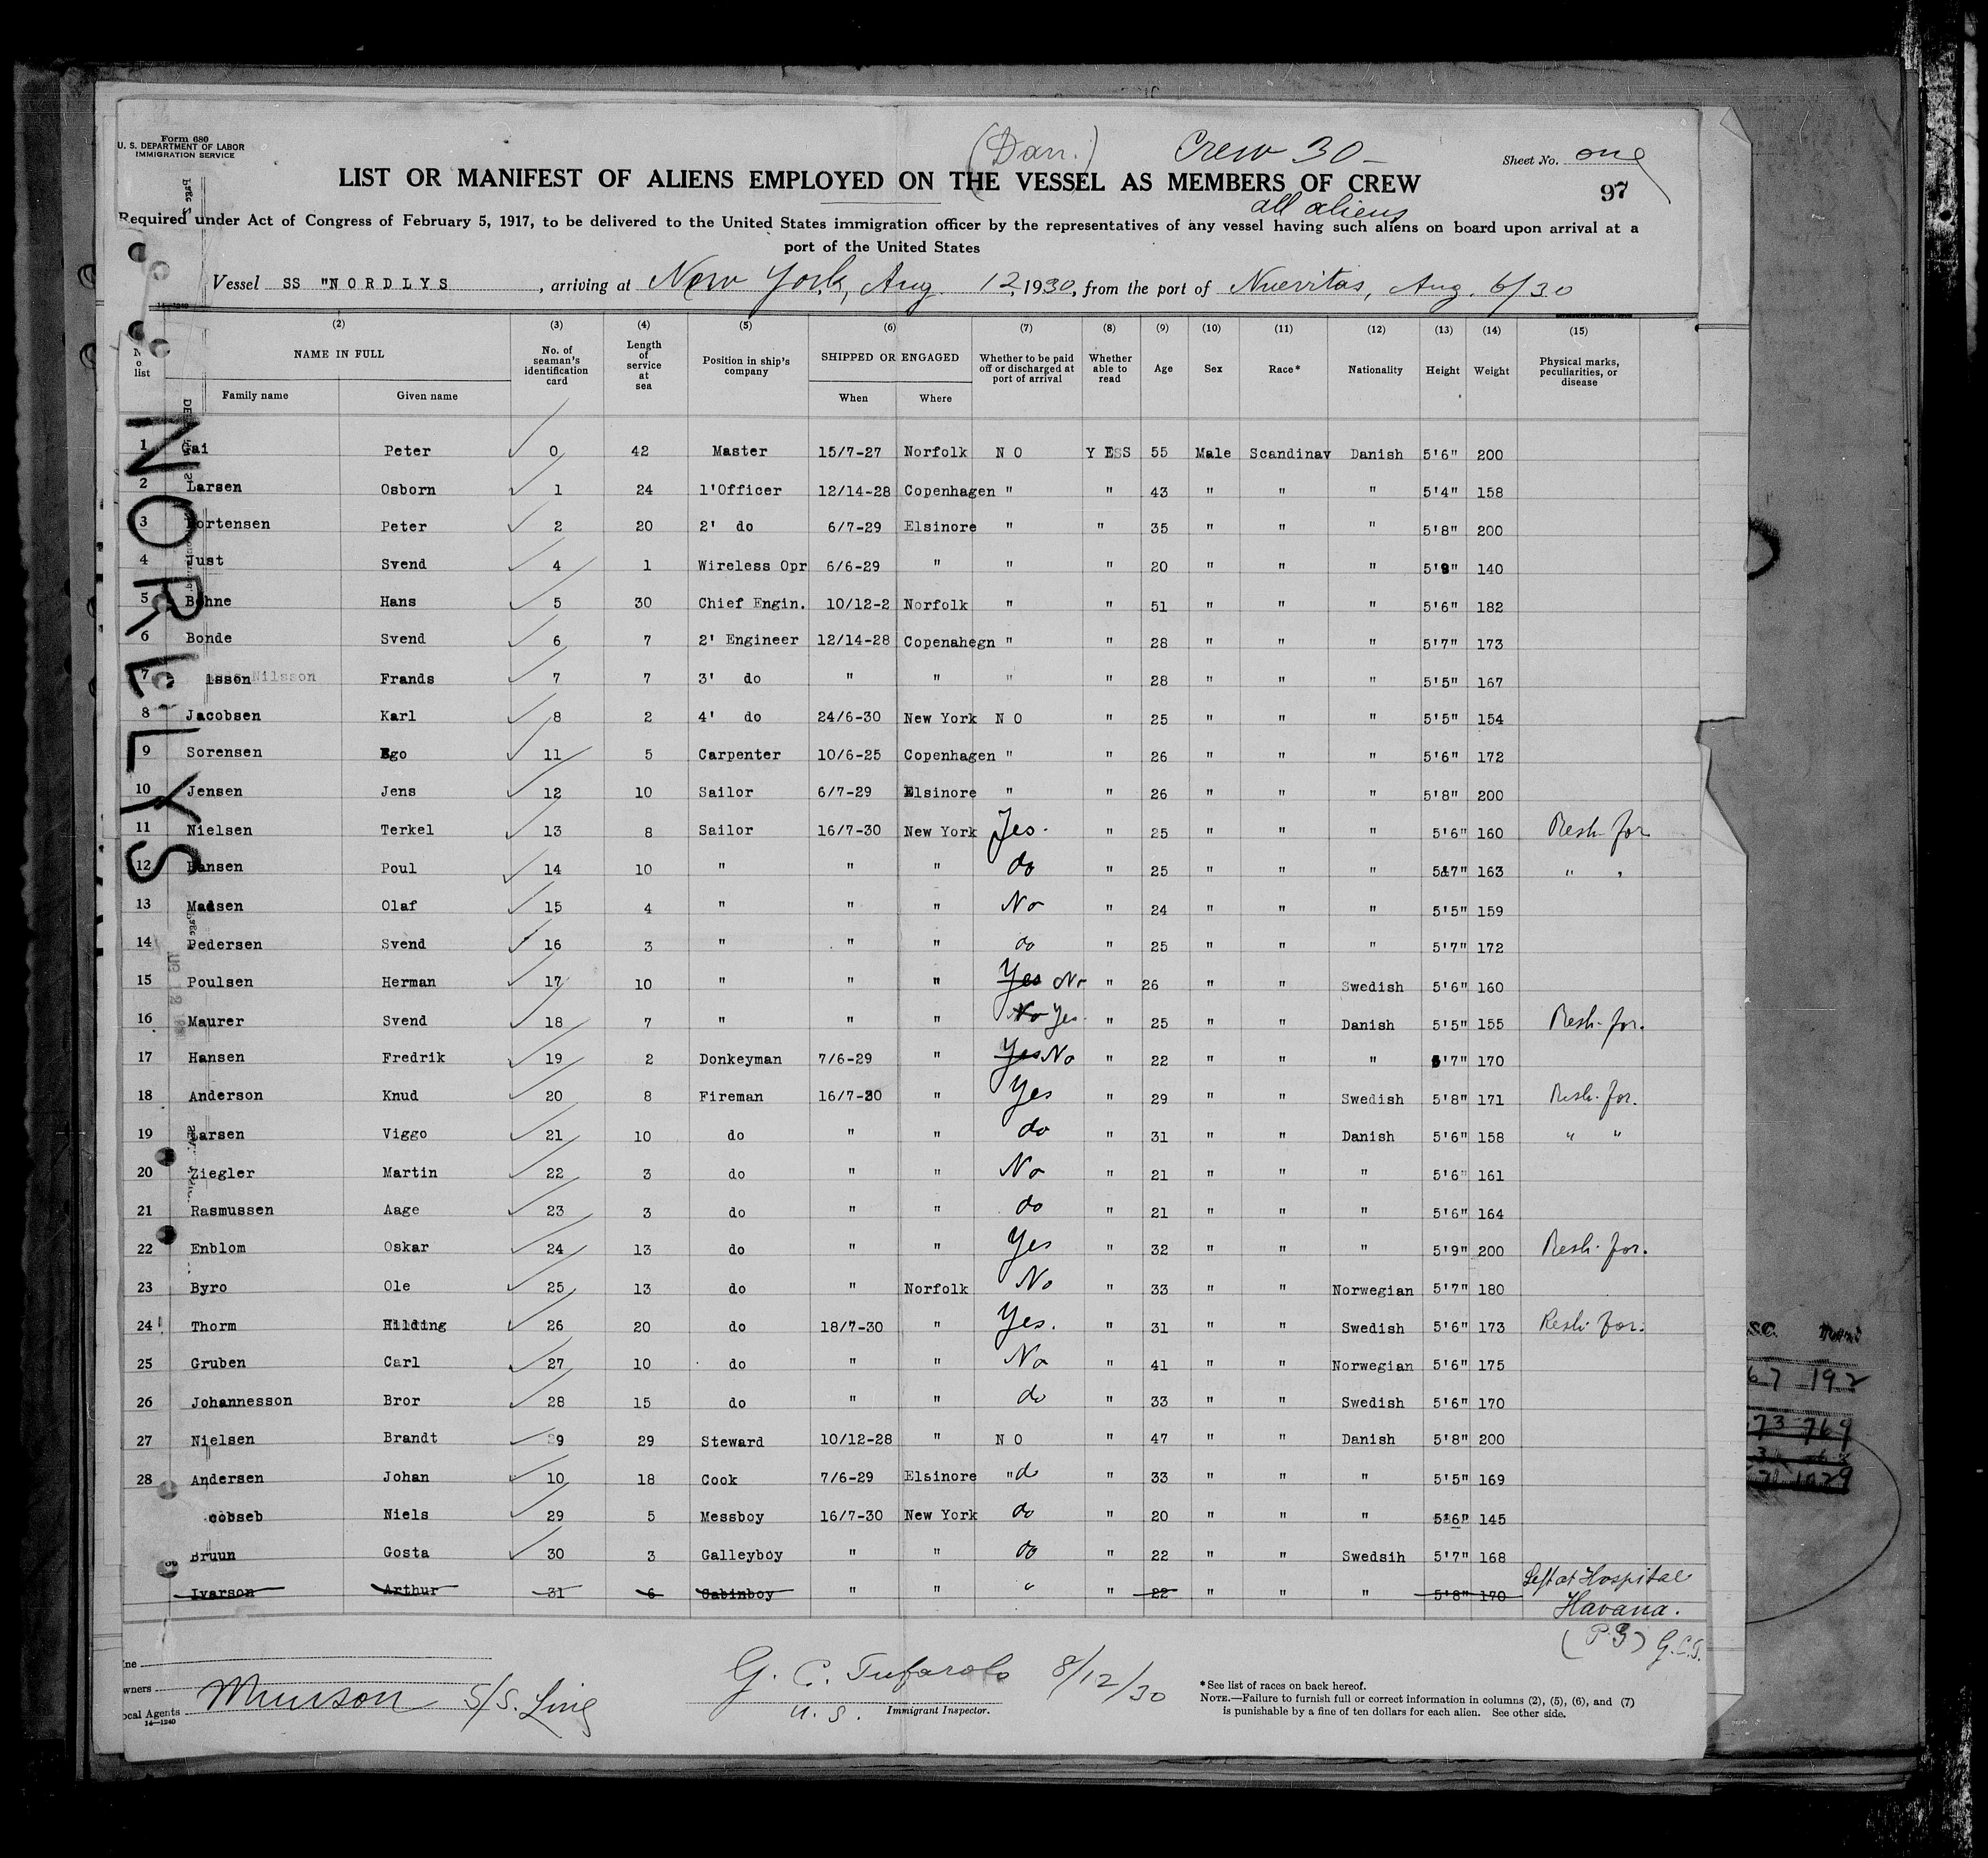 Form 680
U. S. DEPARTMENT OF LABOR
IMMIGRATION SERVICE
(Dan.) Crew 30 -
Sheet No. one
LIST OR MANIFEST OF ALIENS EMPLOYED ON THE VESSEL AS MEMBERS OF CREW
97
all aliens
Required under Act of Congress of February 5, 1917, to be delivered to the United States immigration officer by the representatives of any vessel having such aliens on board upon arrival at a
port of the United States
Vessel SS "NORDLYS , arriving at New York, Aug. 12, 1930, from the port of Nuevitas, Aug. 6/30
(2) (3) (4) (5) (6) (7) (8) (9) (10) (11) (12) (13) (14) (15)
list NAME IN FULL No. of seaman's identification card Length of service at sea Position in ship's company SHIPPED OR ENGAGED Whether to be paid off or discharged at port of arrival Whether able to read Age Sex Race* Nationality Height Weight Physical marks, peculiarities, or disease
Family name Given name When Where
NORLLYS
1 Gai Peter 0 42 Master 15/7-27 Norfolk NO YESS 55 Male Scandinav Danish 5'6" 200
2 Larsen Osborn 1 24 1'Officer 12/14-28 Copenhagen " " 43 " " " 5'4" 158
3 ortensen Peter 2 20 2' do 6/7-29 Elsinore " " 35 " " " 5'8" 200
4 Just Svend 4 1 Wireless Opr 6/6-29 " " " 20 " " " 5'9" 140
5 Bohne Hans 5 30 Chief Engin. 10/12-2 Norfolk " " 51 " " " 5'6" 182
6 Bonde Svend 6 7 2' Engineer 12/14-28 Copenahegn " " 28 " " " 5'7" 173
7 lsson Nilsson Frands 7 7 3' do " " " " 28 " " " 5'5" 167
8 Jacobsen Karl 8 2 4' do 24/6-30 New York NO " 25 " " " 5'5" 154
9 Sorensen Ego 11 5 Carpenter 10/6-25 Copenhagen " " 26 " " " 5'6" 172
10 Jensen Jens 12 10 Sailor 6/7-29 Elsinore " " 26 " " " 5'8" 200
11 Nielsen Terkel 13 8 Sailor 16/7-30 New York Yes. " 25 " " " 5'6" 160 Resh. for.
12 Hansen Poul 14 10 " " " do " 25 " " " 5'7" 163 " "
13 Madsen Olaf 15 4 " " " No " 24 " " " 5'5" 159
14 Pedersen Svend 16 3 " " " do " 25 " " " 5'7" 172
15 Poulsen Herman 17 10 " " " Yes No " 26 " " Swedish 5'6" 160
16 Maurer Svend 18 7 " " " No Yes. " 25 " " Danish 5'5" 155 Resh. for.
17 Hansen Fredrik 19 2 Donkeyman 7/6-29 " Yes No " 22 " " " 5'7" 170
18 Anderson Knud 20 8 Fireman 16/7-30 " Yes " 29 " " Swedish 5'8" 171 Resh. for.
19 Larsen Viggo 21 10 do " " do " 31 " " Danish 5'6" 158 " "
20 Ziegler Martin 22 3 do " " No " 21 " " " 5'6" 161
21 Rasmussen Aage 23 3 do " " do " 21 " " " 5'6" 164
22 Enblom Oskar 24 13 do " " Yes " 32 " " " 5'9" 200 Resh. for.
23 Byro Ole 25 13 do " Norfolk No " 33 " " Norwegian 5'7" 180
24 Thorm Hilding 26 20 do 18/7-30 " Yes. " 31 " " Swedish 5'6" 173 Resh. for.
25 Gruben Carl 27 10 do " " No " 41 " " Norwegian 5'6" 175
26 Johannesson Bror 28 15 do " " do " 33 " " Swedish 5'6" 170
27 Nielsen Brandt 9 29 Steward 10/12-28 " NO " 47 " " Danish 5'8" 200
28 Andersen Johan 10 18 Cook 7/6-29 Elsinore "do " 33 " " " 5'5" 169
cobseb Niels 29 5 Messboy 16/7-30 New York do " 20 " " " 5'6" 145
Bruun Gosta 30 3 Galleyboy " " do " 22 " " Swedsih 5'7" 168
Ivarson Arthur 31 6 Cabinboy " " " " 22 " " " 5'8" 170 Left at Hospital
Havana.
(P.S) G.C.T.
ne
wners
ocal Agents Munson S/S. Line
14-1240
G. C. Tufarolo 8/12/30
U. S. Immigrant Inspector.
*See list of races on back hereof.
NOTE.—Failure to furnish full or correct information in columns (2), (5), (6), and (7)
is punishable by a fine of ten dollars for each alien. See other side.
67 192
73 769
1029